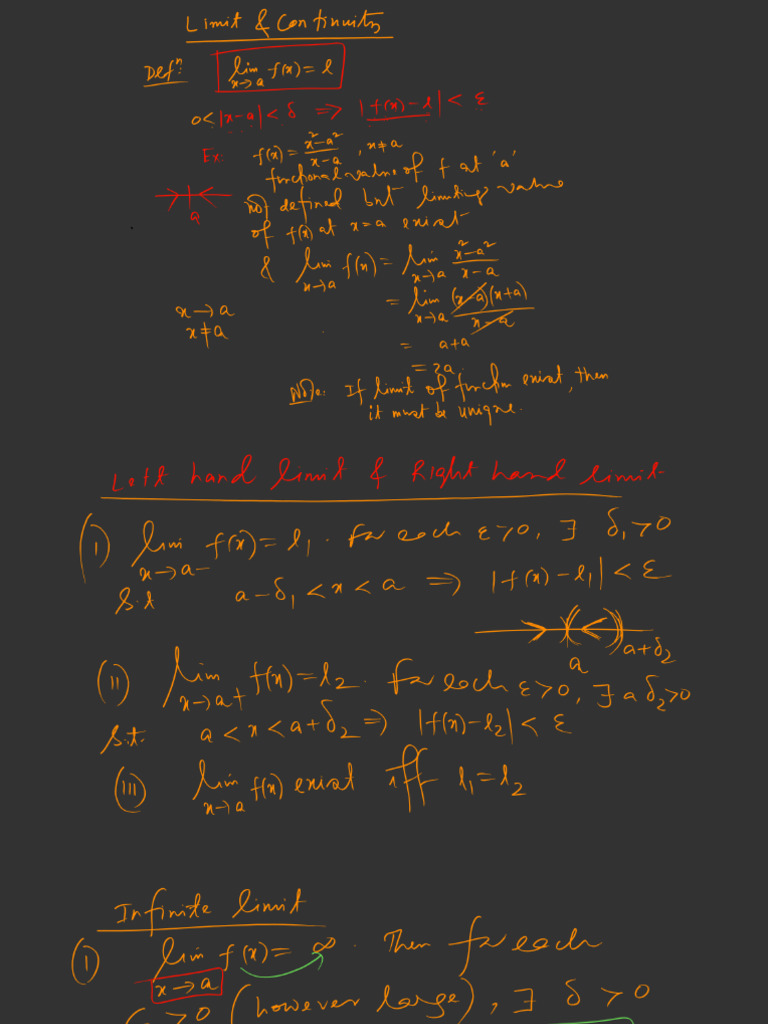 Limit & Continuity
Defⁿ: lim x→a f(x) = l
0 < |x-a| < δ ⇒ |f(x) - l| < ε
Ex: f(x) = (x²-a²)/(x-a), x≠a
functional value of f at 'a'
a
not defined but limiting value
of f(x) at x=a exist
& lim x→a f(x) = lim x→a (x²-a²)/(x-a)
x→a
x≠a
= lim x→a (x-a)(x+a)/(x-a)
= a+a
= 2a
Note: If limit of function exist, then
it must be unique.
Left hand limit & Right hand limit-
(i) lim x→a- f(x) = l₁. For each ε>0, ∃ δ₁>0
s.t a-δ₁ < x < a ⇒ |f(x) - l₁| < ε
a a+δ₂
(ii) lim x→a+ f(x) = l₂. For each ε>0, ∃ a δ₂>0
s.t. a < x < a+δ₂ ⇒ |f(x)-l₂| < ε
(iii) lim x→a f(x) exist iff l₁=l₂
Infinite limit
(i) lim x→a f(x) = ∞. Then for each
>0 (however large), ∃ δ > 0